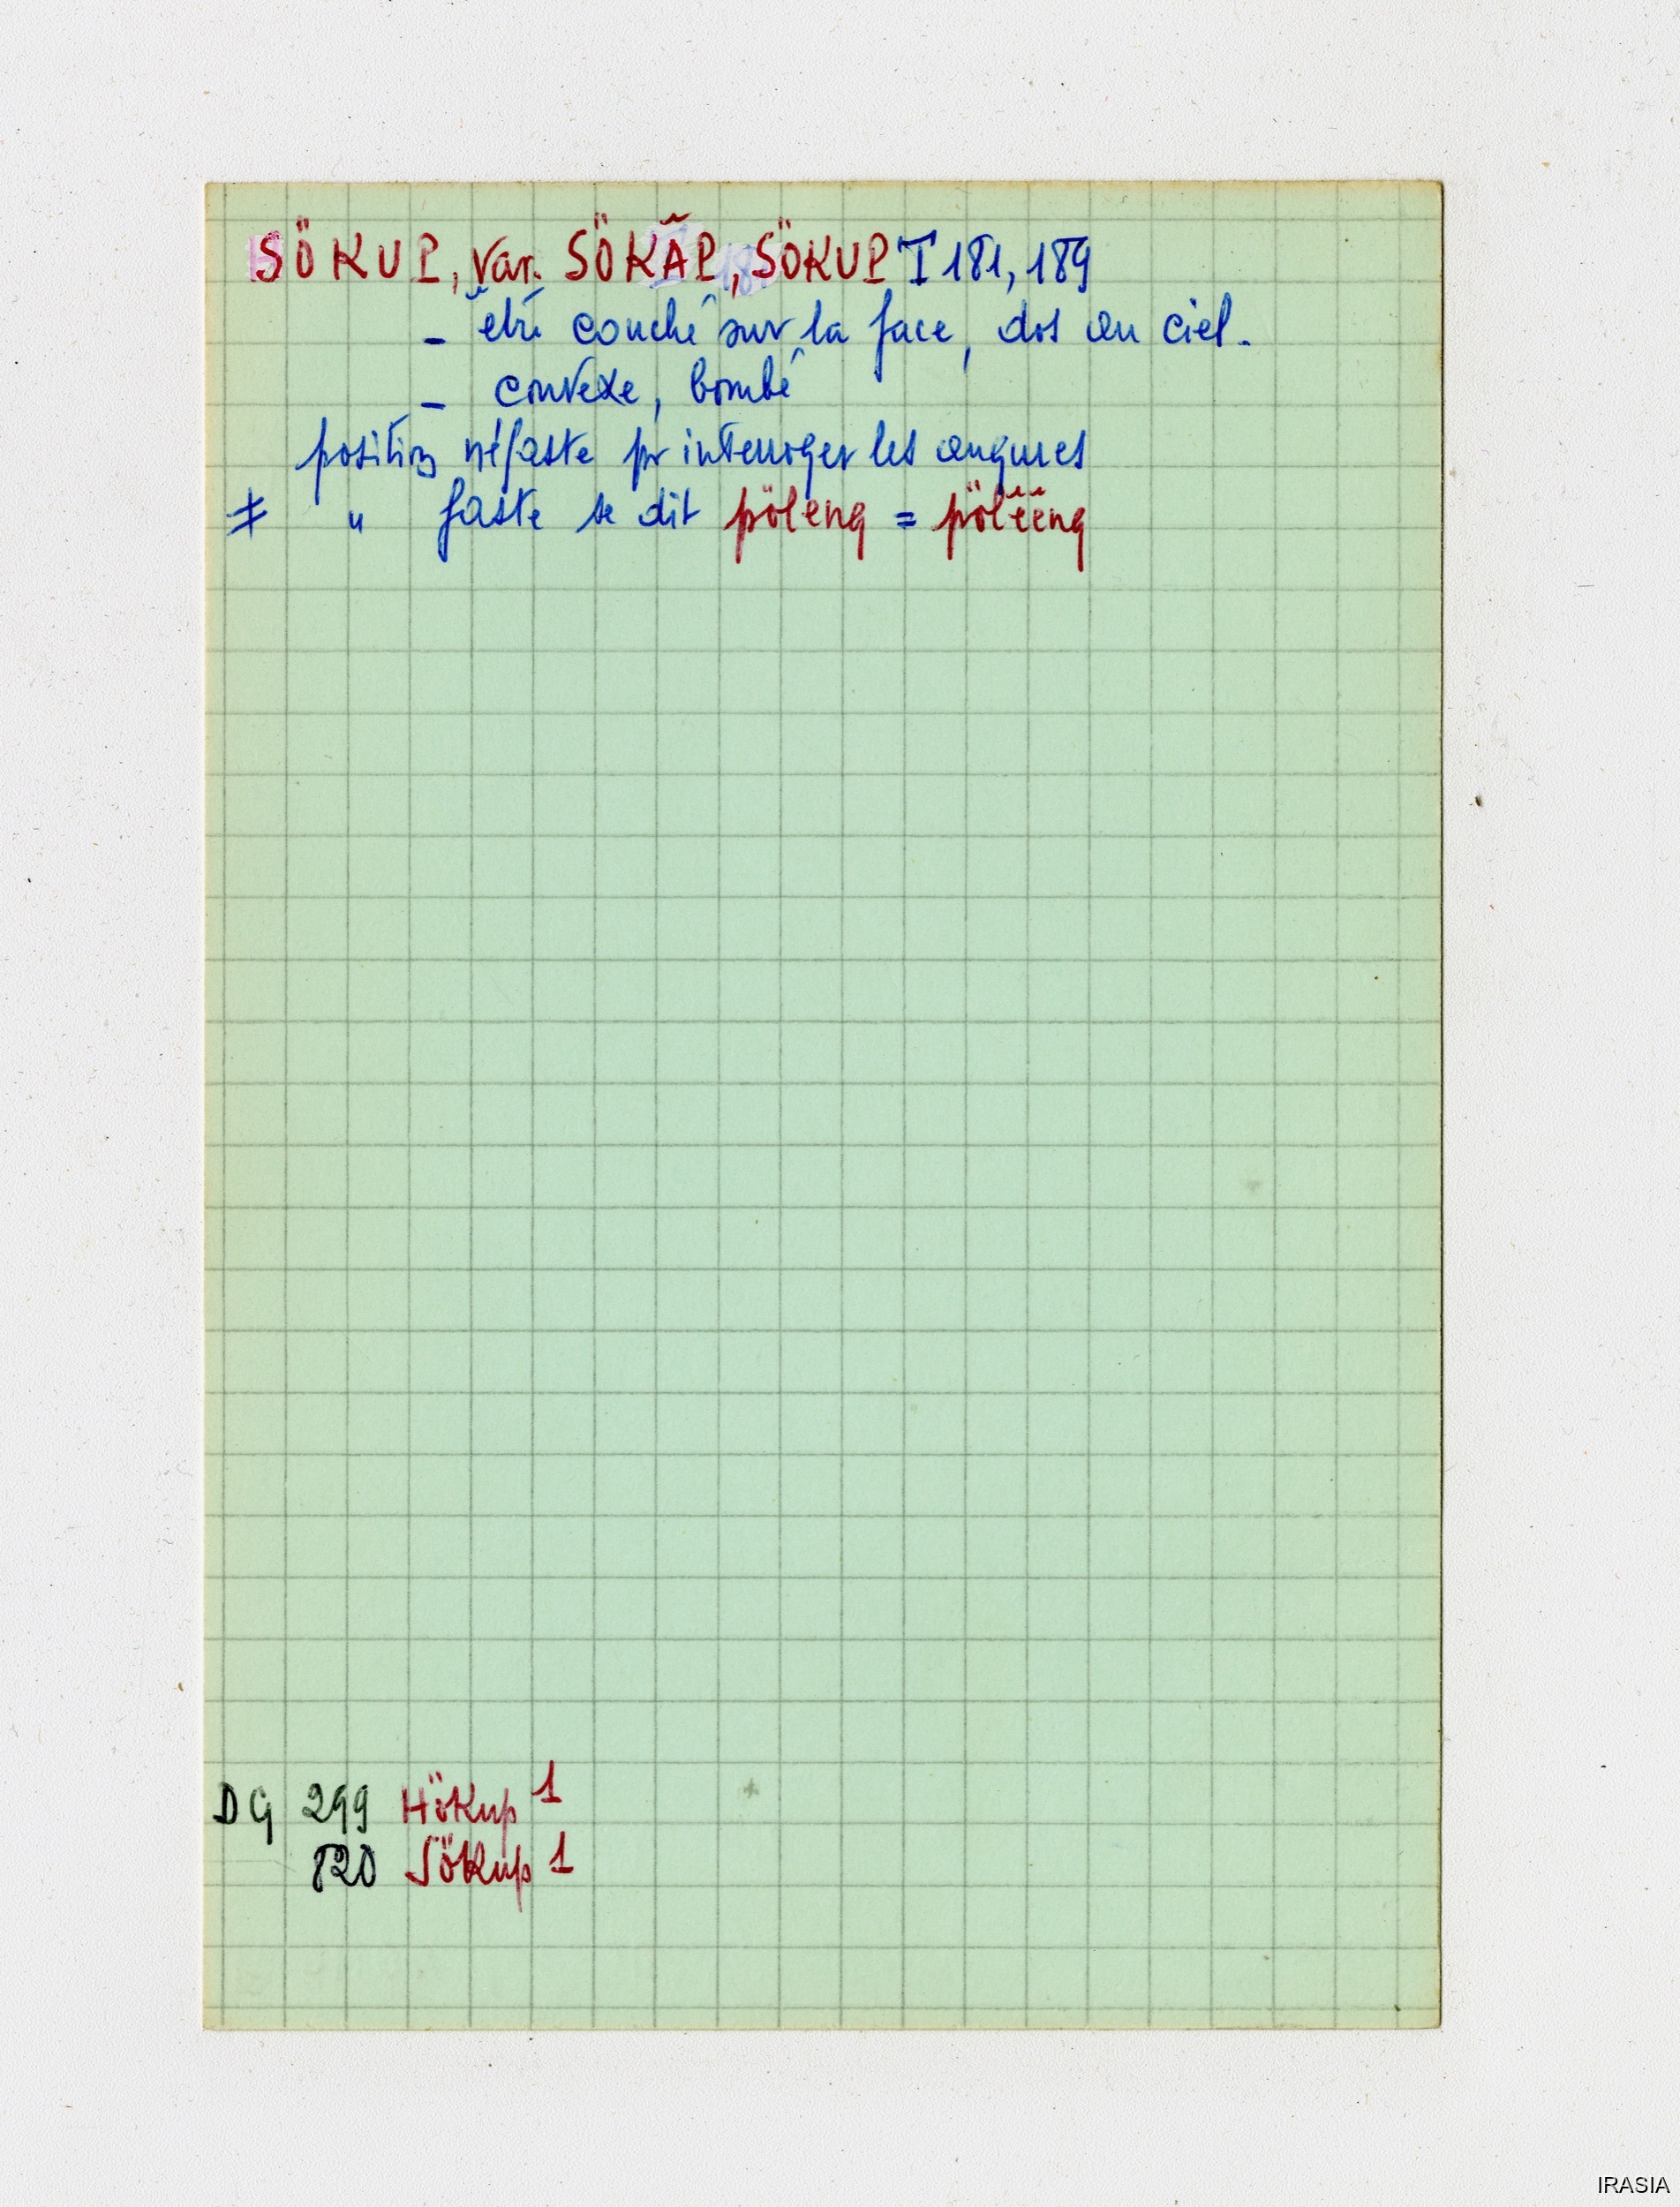 SÖKUP, var. SÖKĂP, SÖKUP I 181, 189
- être couché sur la face, dos au ciel.
- convexe, bombé
position néfaste pr interroger les augures
≠ " faste se dit pöleng = pölĕĕng
DG 299 Hökup 1
820 Sökup 1
IRASIA